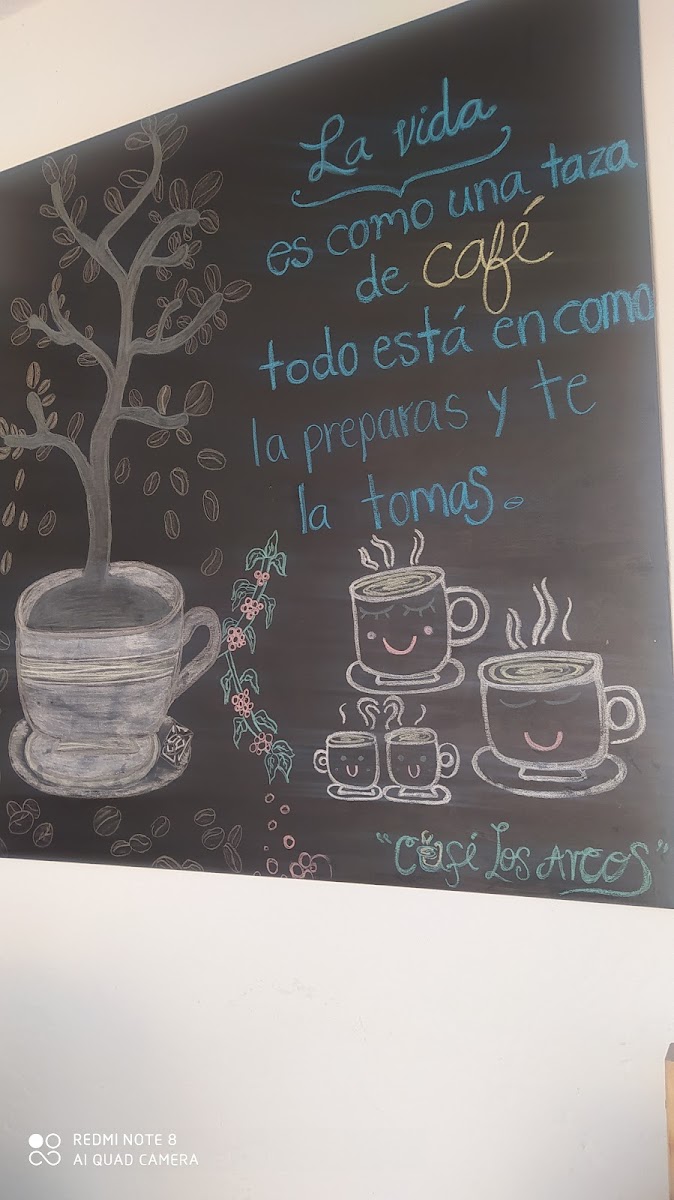 La vida
es como una taza
de café
todo está en como
la preparas y te
la tomas.
"Café Los Arcos"
REDMI NOTE 8
AI QUAD CAMERA